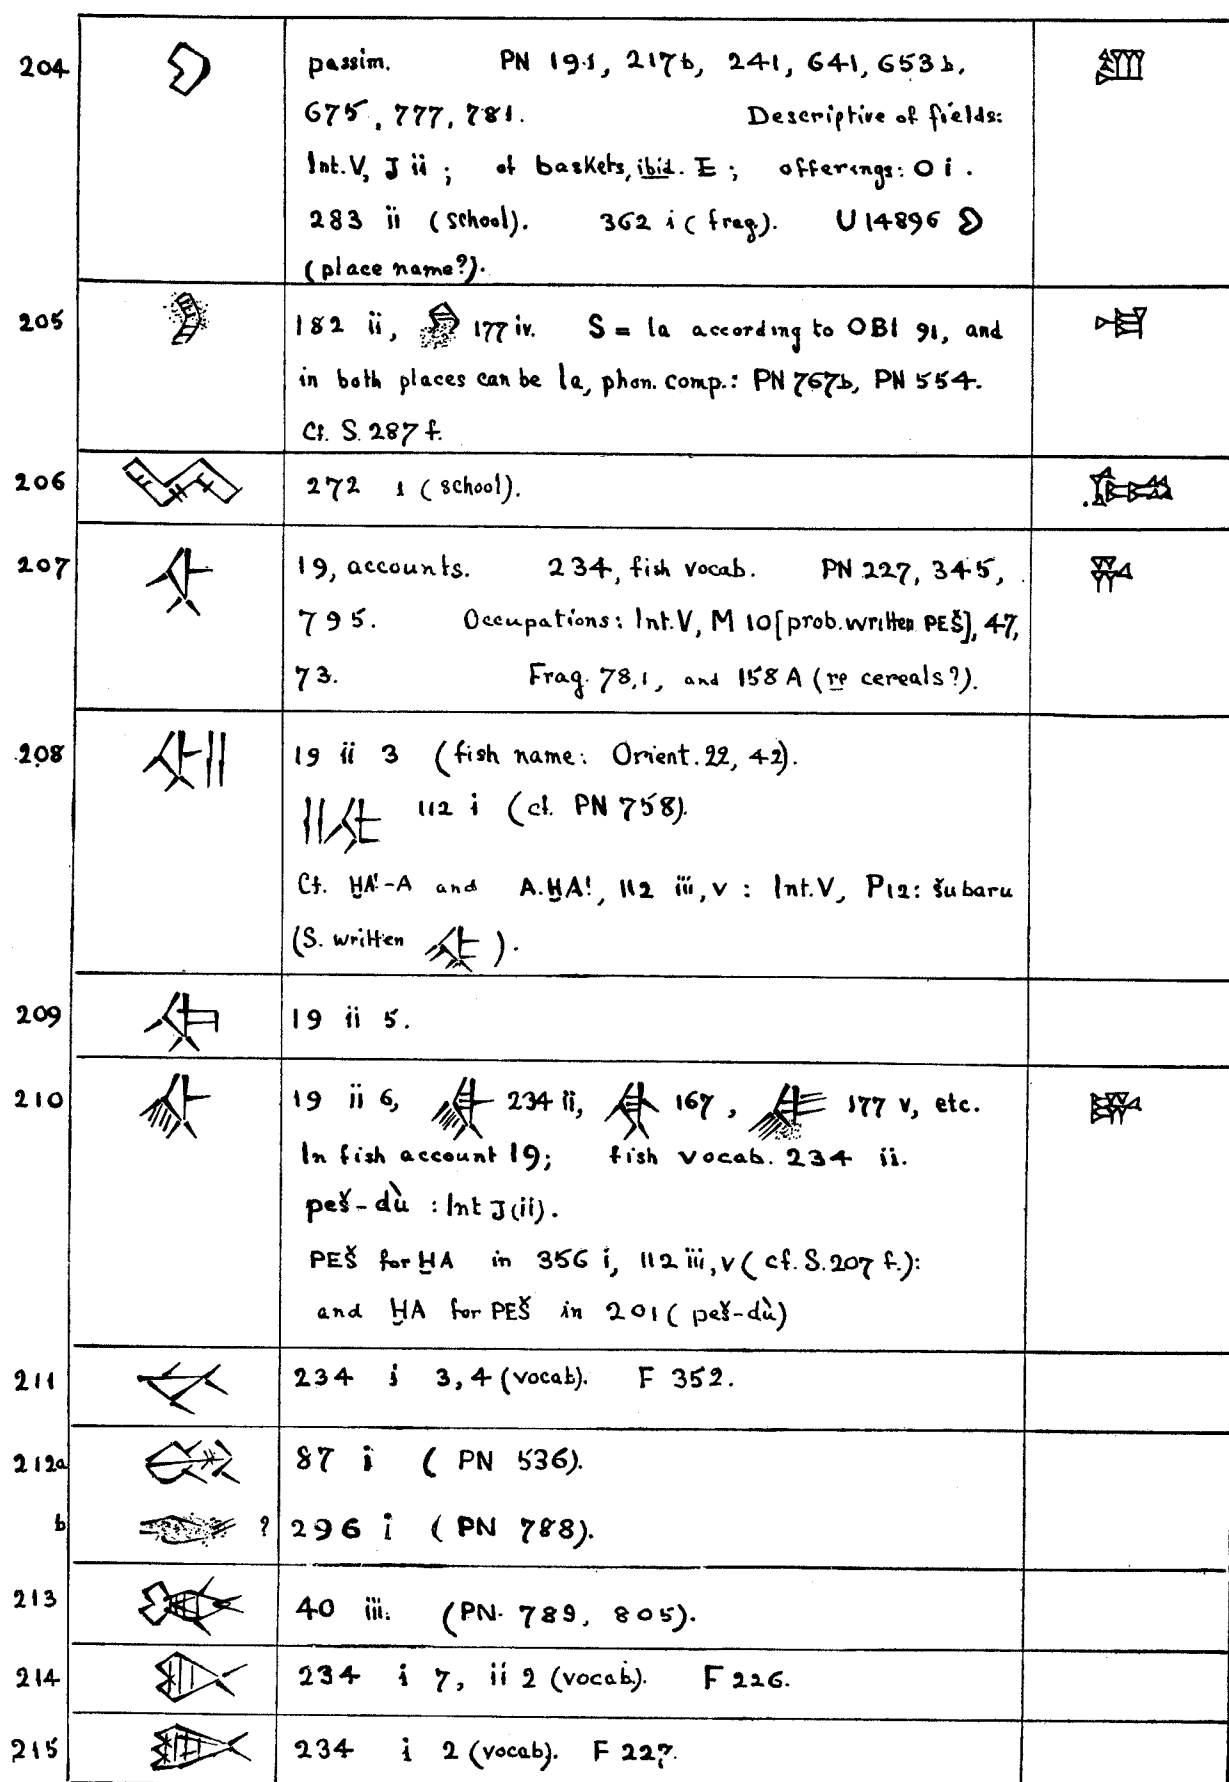 204 passim. PN 191, 217b, 241, 641, 653b,
675, 777, 781. Descriptive of fields:
Int.V, J ii ; of baskets, ibid. E ; offerings: O i.
283 ii (school). 362 i (frag.). U 14896
(place name?).
205 182 ii, 177 iv. S = la according to OBI 91, and
in both places can be la, phon. comp.: PN 767b, PN 554.
Cf. S. 287 f.
206 272 i (school).
207 19, accounts. 234, fish vocab. PN 227, 345,
795. Occupations: Int.V, M 10 [prob. written PEŠ], 47,
73. Frag. 78,1, and 158 A (re cereals?).
208 19 ii 3 (fish name: Orient. 22, 42).
112 i (cf. PN 758).
Cf. ḪA!-A and A.ḪA!, 112 iii, v : Int.V, P12: šubaru
(S. written ).
209 19 ii 5.
210 19 ii 6, 234 ii, 167, 177 v, etc.
In fish account 19; fish vocab. 234 ii.
peš-dù : Int J(ii).
PEŠ for ḪA in 356 i, 112 iii, v (cf. S. 207 f.):
and ḪA for PEŠ in 201 (peš-dù)
211 234 i 3, 4 (vocab). F 352.
212a 87 i (PN 536).
b ? 296 i (PN 788).
213 40 iii. (PN. 789, 805).
214 234 i 7, ii 2 (vocab.). F 226.
215 234 i 2 (vocab). F 227.